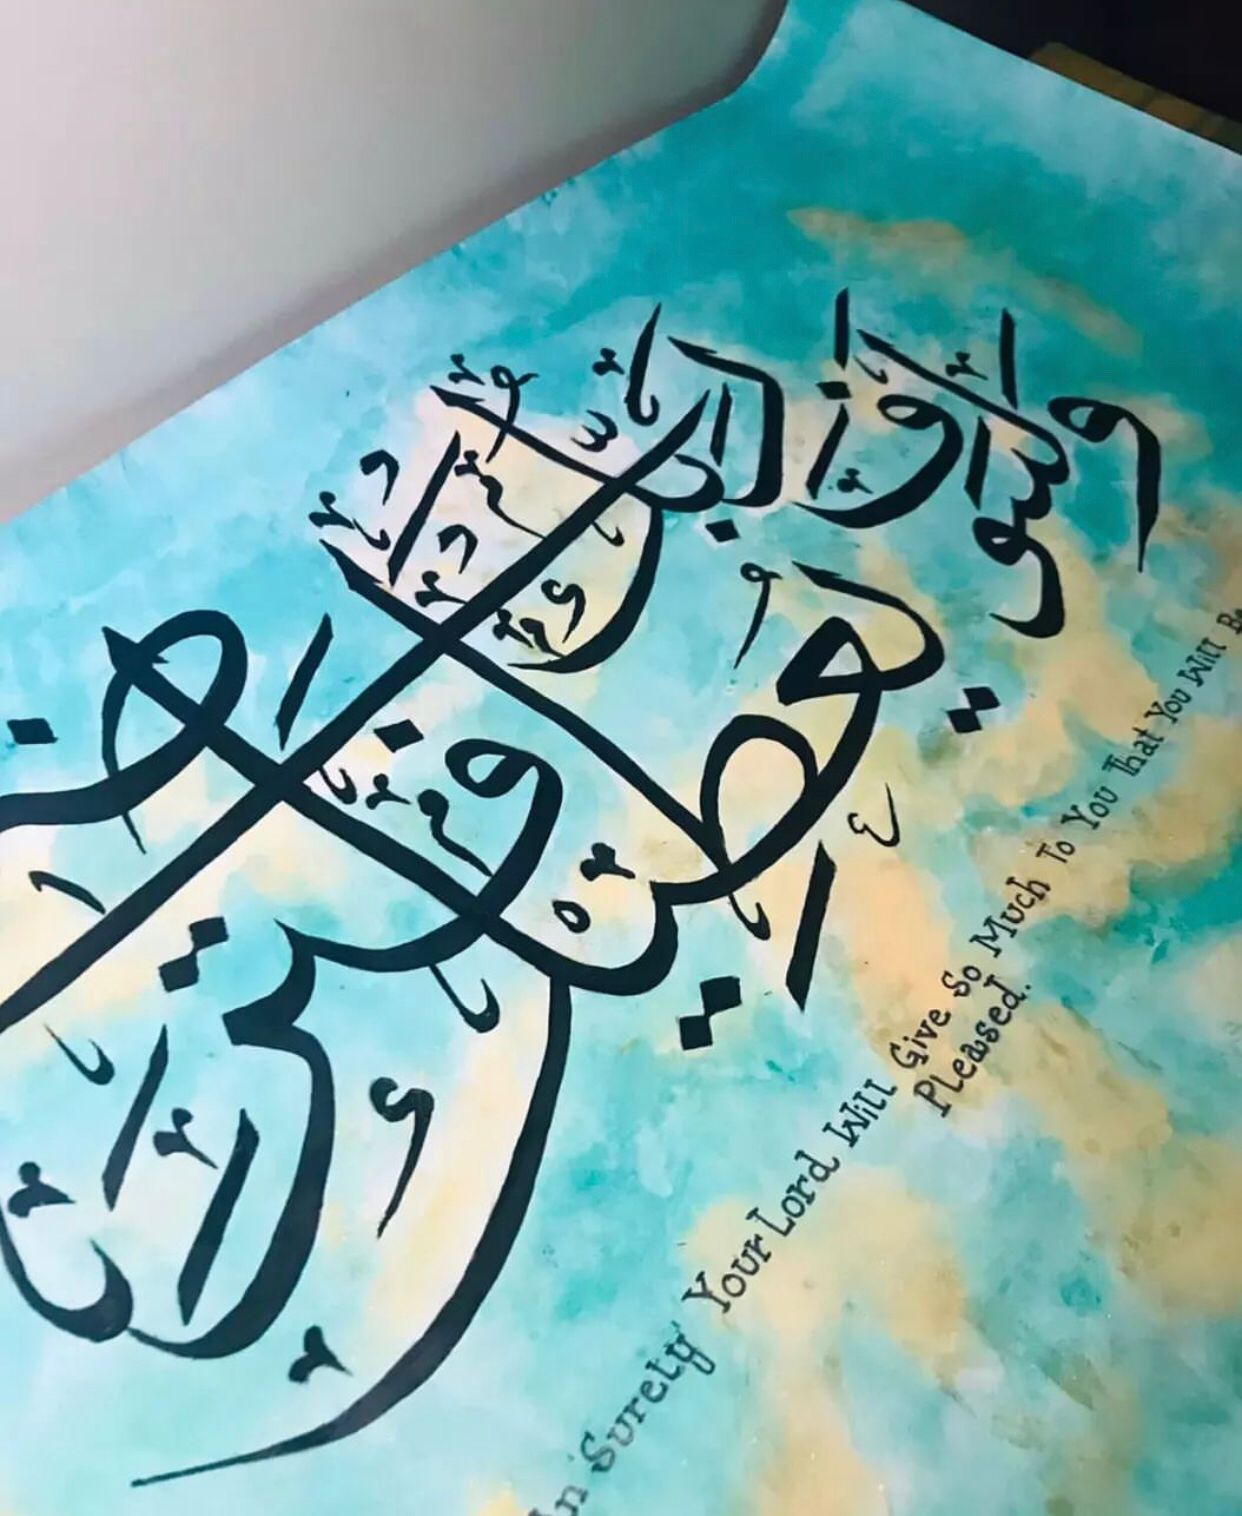 ولسوف يعطيك ربك فترضى
In Surely Your Lord Will Give So Much To You That You Will Be
Pleased.